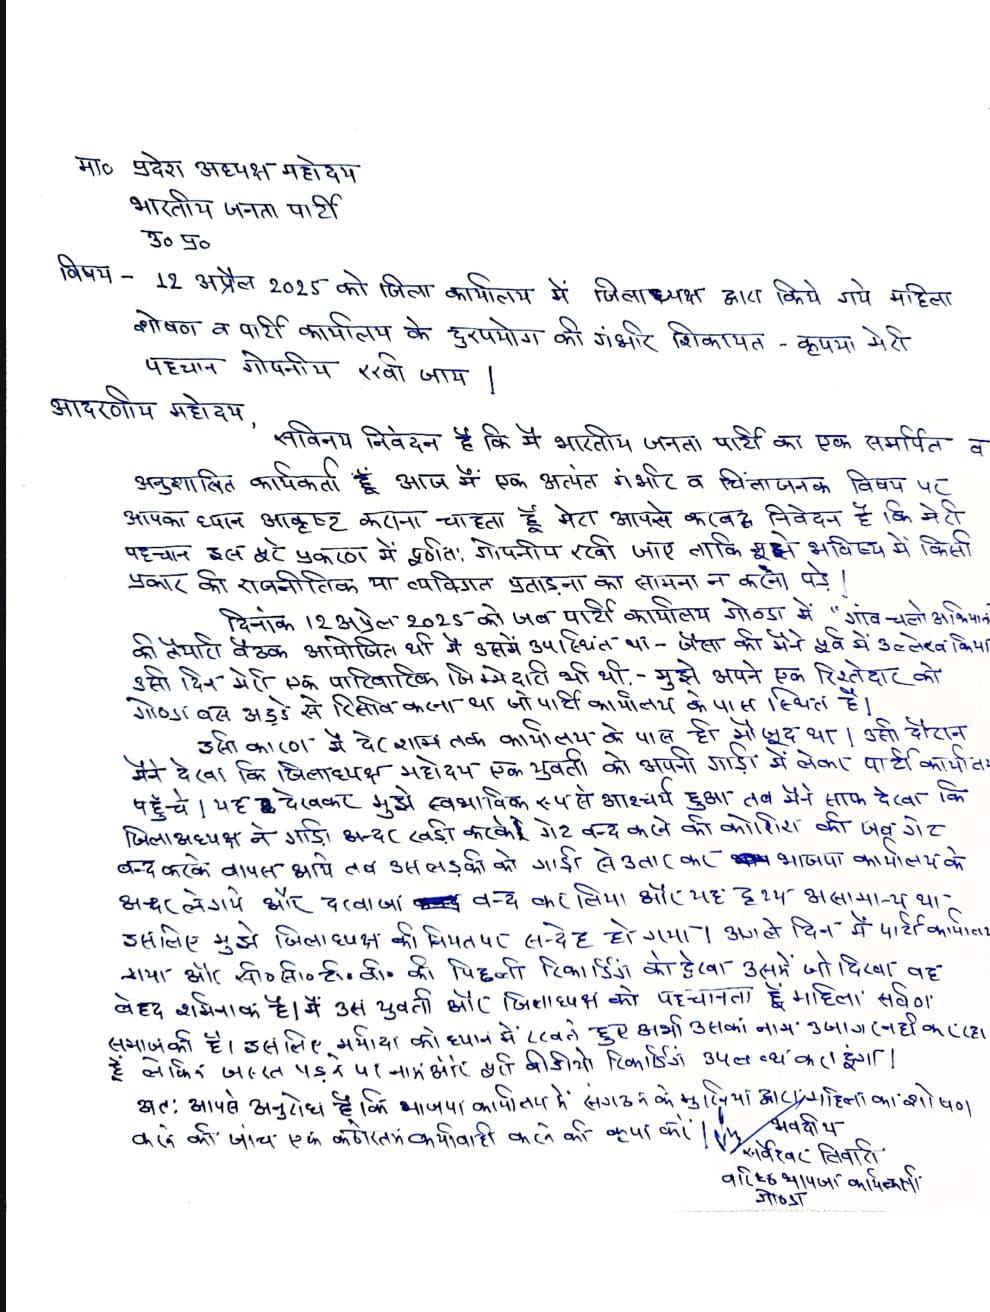 मा० प्रदेश अध्यक्ष महोदय
भारतीय जनता पार्टी
उ० प्र०
विषय - 12 अप्रैल 2025 को जिला कार्यालय में जिलाध्यक्ष द्वारा किये गये महिला
शोषण व पार्टी कार्यालय के दुरुपयोग की गंभीर शिकायत - कृपया मेरी
पहचान गोपनीय रखी जाय |
आदरणीय महोदय,
सविनय निवेदन है कि मैं भारतीय जनता पार्टी का एक समर्पित व
अनुशासित कार्यकर्ता हूँ आज मैं एक अत्यंत गंभीर व चिंताजनक विषय पर
आपका ध्यान आकृष्ट कराना चाहता हूँ मेरा आपसे करबद्ध निवेदन है कि मेरी
पहचान इस पूरे प्रकरण में पूर्णतः गोपनीय रखी जाए ताकि मुझे भविष्य में किसी
प्रकार की राजनीतिक या व्यक्तिगत प्रताड़ना का सामना न करना पड़े |
दिनांक 12 अप्रैल 2025 को जब पार्टी कार्यालय गोण्डा में "गांव चलो अभियान
की तैयारी बैठक आयोजित थी मैं उसमें उपस्थित था - जैसा की मैंने पूर्व में उल्लेख किया
उसी दिन मेरी एक पारिवारिक जिम्मेदारी भी थी - मुझे अपने एक रिश्तेदार को
गोण्डा बस अड्डे से रिसीव करना था जो पार्टी कार्यालय के पास स्थित है |
उसी कारण मैं देर शाम तक कार्यालय के पास ही मौजूद था | उसी दौरान
मैंने देखा कि जिलाध्यक्ष महोदय एक युवती को अपनी गाड़ी में लेकर पार्टी कार्यालय
पहुँचे | यह देखकर मुझे स्वभाविक रूप से आश्चर्य हुआ तब मैंने साफ देखा कि
जिलाअध्यक्ष ने गाड़ी अन्दर खड़ी करके गेट बन्द करने की कोशिश की जब गेट
बन्द करके वापस आये तब उस लड़की को गाड़ी से उतार कर भाजपा कार्यालय के
अन्दर ले गये और दरवाजा बन्द कर लिया और यह दृश्य असामान्य था -
इसलिए मुझे जिलाध्यक्ष की नियत पर सन्देह हो गया | अगले दिन मैं पार्टी कार्यालय
गया और सी० सी० टी० वी० की पिछली रिकार्डिंग को देखा उसमें जो दिखा वह
बेहद शर्मनाक है | मैं उस युवती और जिलाध्यक्ष को पहचानता हूँ महिला सवर्ण
समाज की है | इसलिए मर्यादा को ध्यान में रखते हुए अभी उसका नाम उजागर नही कर रहा
हूँ लेकिन जरूरत पड़ने पर नाम और पूरी वीडीओ रिकार्डिंग उपलब्ध करा दूंगा |
अतः आपसे अनुरोध है कि भाजपा कार्यालय में संगठन के मुखिया द्वारा महिला का शोषण
करने की जांच एवं कठोरतम कार्यवाही करने की कृपा करें |
भवदीय
सर्वेश्वर तिवारी
वरिष्ठ भाजपा कार्यकर्ता
गोण्डा